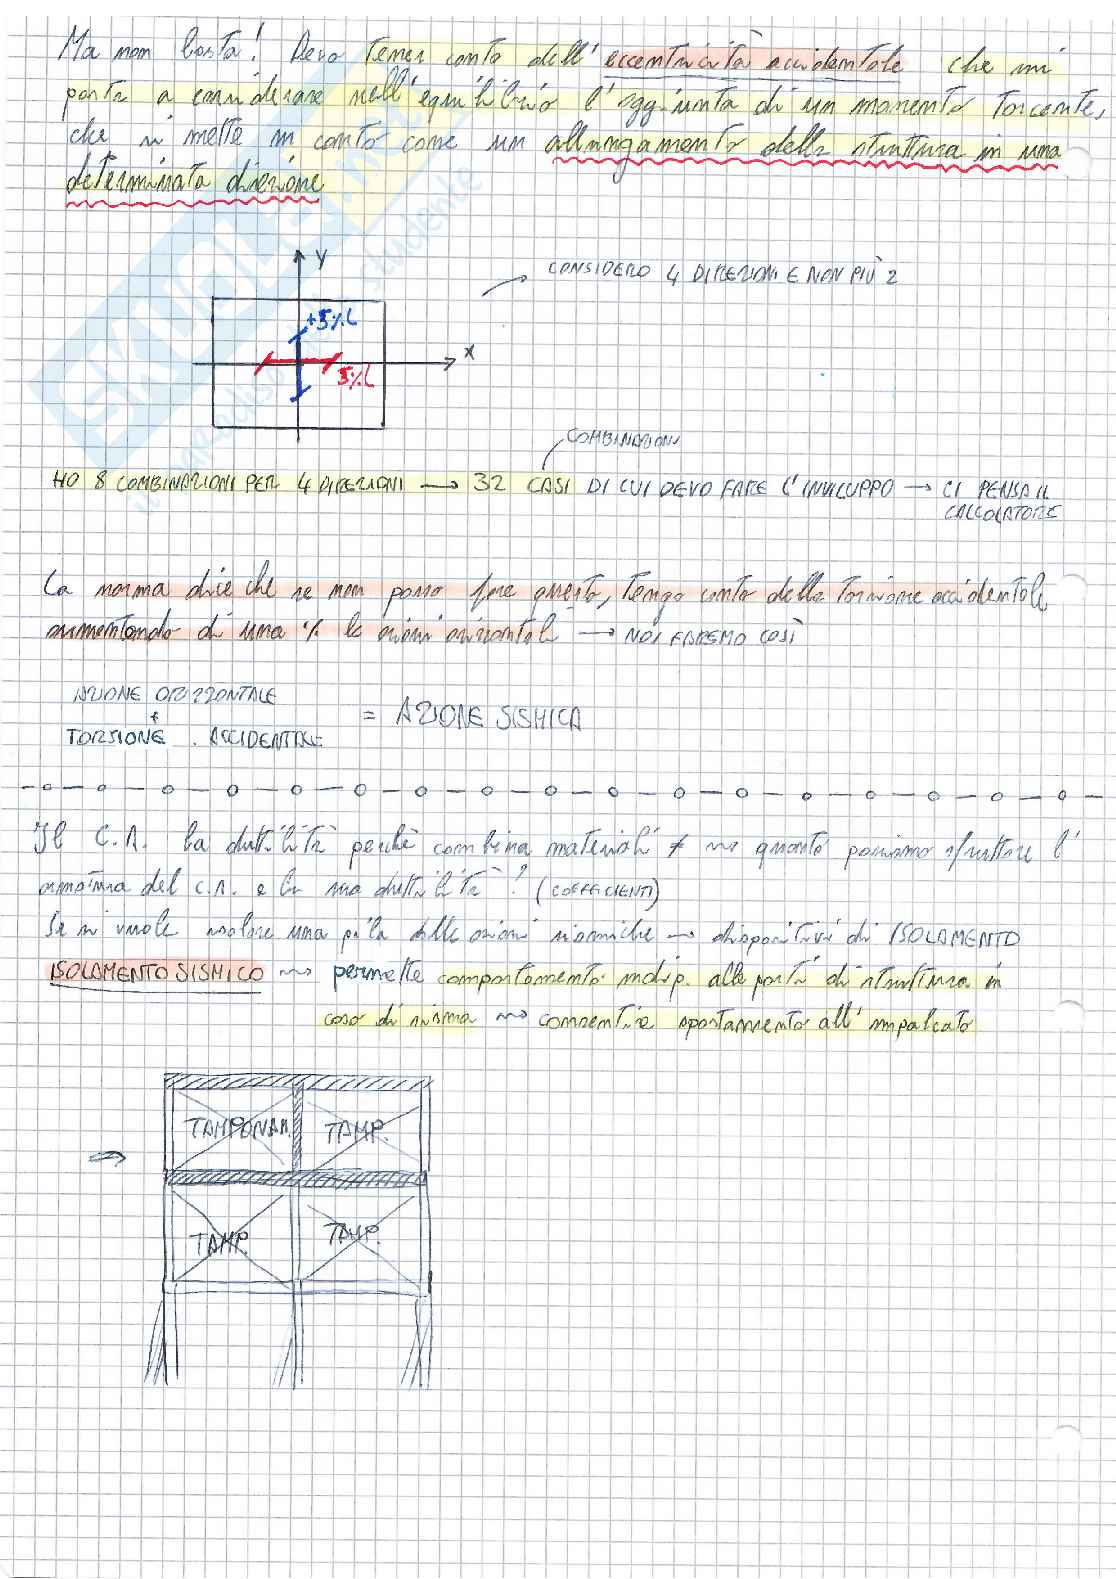 Ma non basta! Devo tener conto dell'eccentricità accidentale che mi
porta a considerare nell'equilibrio l'aggiunta di un momento torcente,
che si mette in conto come un allungamento della struttura in una
determinata direzione
y
CONSIDERO 4 DIREZIONI E NON PIÙ 2
+5% L
x
5% L
COMBINAZIONI
HO 8 COMBINAZIONI PER 4 DIREZIONI → 32 CASI DI CUI DEVO FARE L'INVILUPPO → CI PENSA IL
CALCOLATORE
La norma dice che se non posso fare questo, tengo conto della torsione accidentale
aumentando di una % le azioni orizzontali → NOI FAREMO COSÌ
AZIONE ORIZZONTALE
+
TORSIONE ACCIDENTALE
= AZIONE SISMICA
Il C.A. ha duttilità perchè combina materiali ≠ → quanto possiamo sfruttare l'
armatura del C.A. e la sua duttilità? (COEFFICIENTI)
Se si vuole isolare una pila dalle azioni sismiche → dispositivi di ISOLAMENTO
ISOLAMENTO SISMICO → permette comportamento indip. alle parti di struttura in
caso di sisma → consentire spostamento all'impalcato
TAMPONAM. TAMP.
TAMP. TAMP.
SKUOLA.net
studente